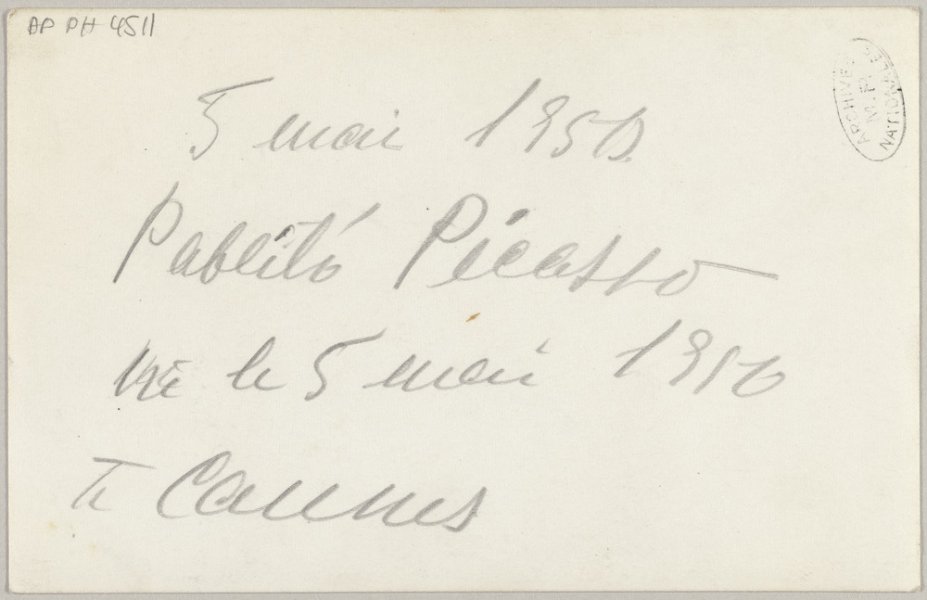 AP PH 4511
ARCHIVES
M.P.
NATIONALES
5 mai 1950
Pablito Picasso
né le 5 mai 1950
à Cannes